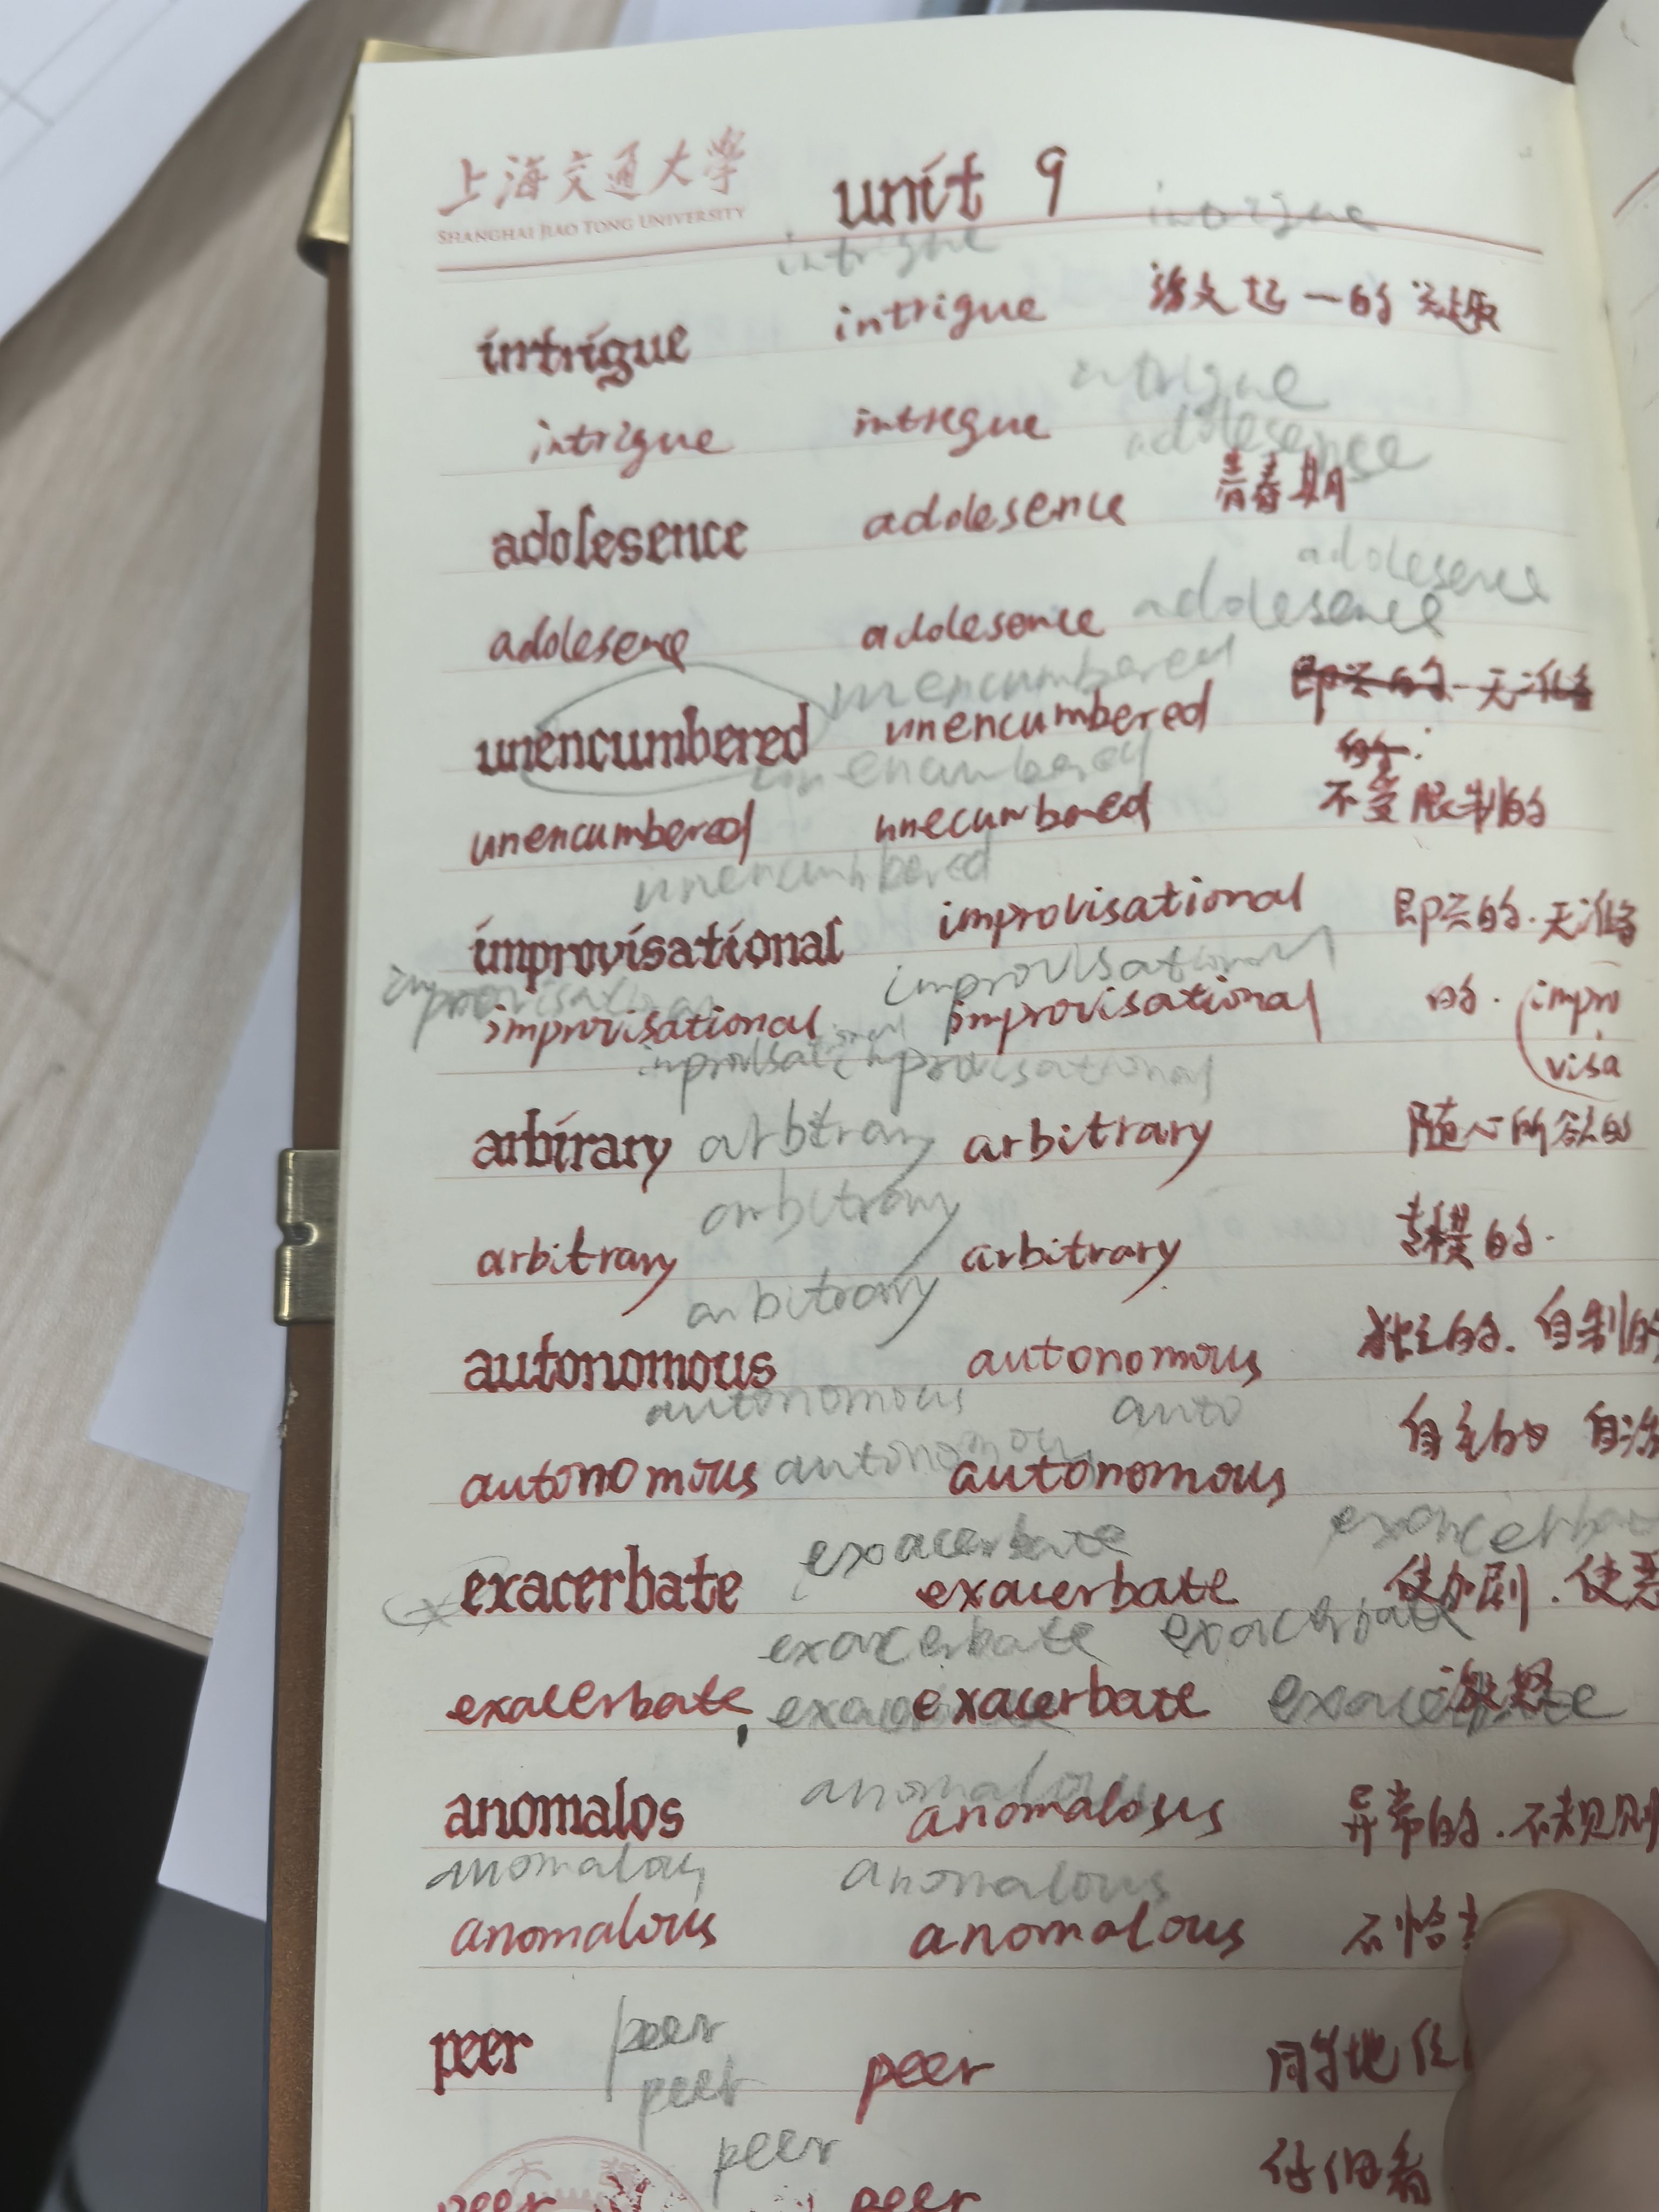 上海交通大學
SHANGHAI JIAO TONG UNIVERSITY
unit 9
intrigue
intrigue
intrigue intrigue 激起一的兴趣
intrigue
intrigue intregue
adolesence
adolesence adolesence 青春期
adolesence
adolesence adolesence adolesence
unencumbered
unencumbered unencumbered 即兴的.无准备
unencumbered 的.
unencumbered unnecumbered 不受限制的
unencumbered
improvisational improvisational 即兴的.无准备
improvisational improvisational
improvisational improvisational 的. (impro
improvisational improvisational visa
arbirary arbitrary arbitrary 随心所欲的
arbitrary
arbitrary arbitrary 专横的.
arbitrary
autonomous autonomous 独立的.自制的
autonomous auto
自主的 自治
autonomous autonomous autonomous
exoacerbate
exacerbate exacerbate 使加剧.使恶
exacerbate exacerbate
exacerbate, exacerbate 激怒
anomalous
anomalos anomalosus 异常的.不规则
anomalous anomalous
anomalous anomalous 不恰
peer peer peer 同等地位
peer
peer
peer peer